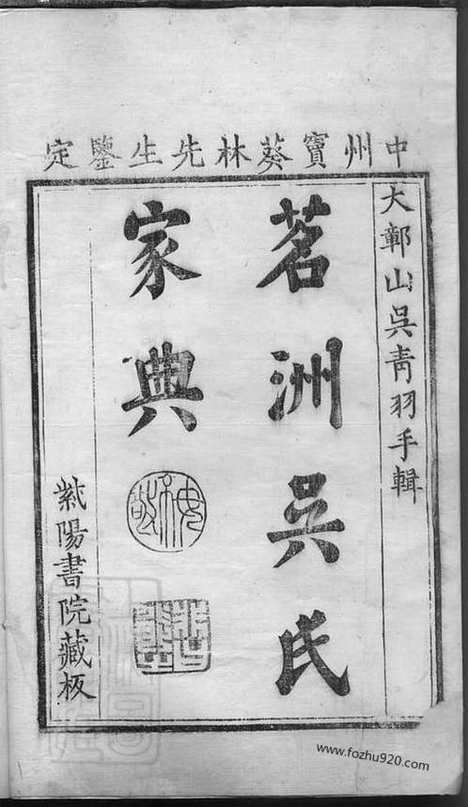 中州寶葵林先生鑒定
大鄣山吳青羽手輯
茗洲吳氏
家典
紫陽書院藏板
www.fozhu920.com